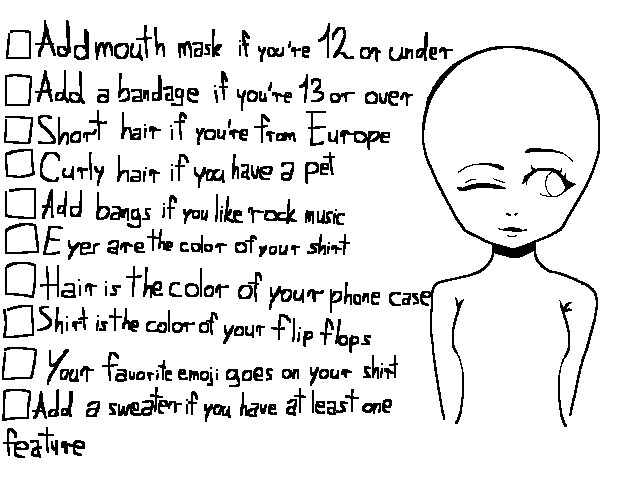 Add mouth mask if you're 12 or under
Add a bandage if you're 13 or over
Short hair if you're from Europe
Curly hair if you have a pet
Add bangs if you like rock music
Eyer are the color of your shirt
Hair is the color of your phone case
Shirt is the color of your flip flops
Your favorite emoji goes on your shirt
Add a sweater if you have at least one
feature